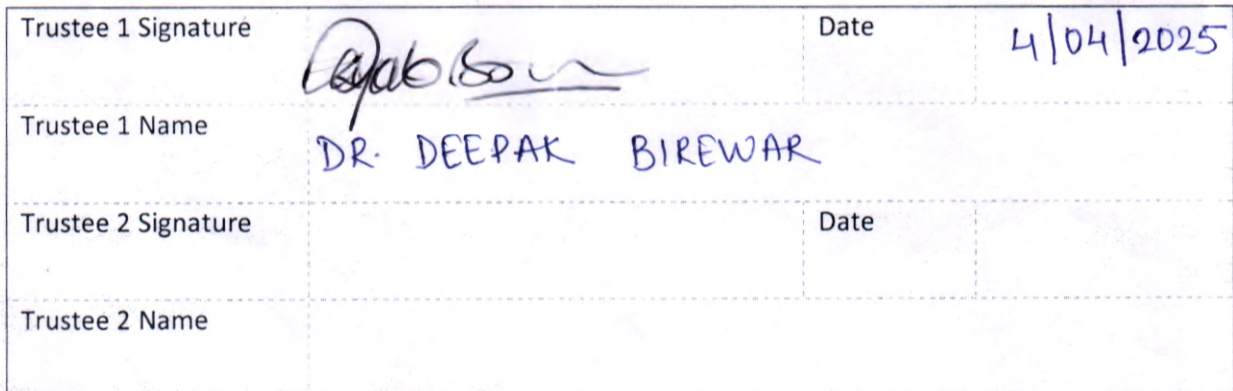 Trustee 1 Signature Date 4/04/2025
Trustee 1 Name DR. DEEPAK BIREWAR
Trustee 2 Signature Date
Trustee 2 Name